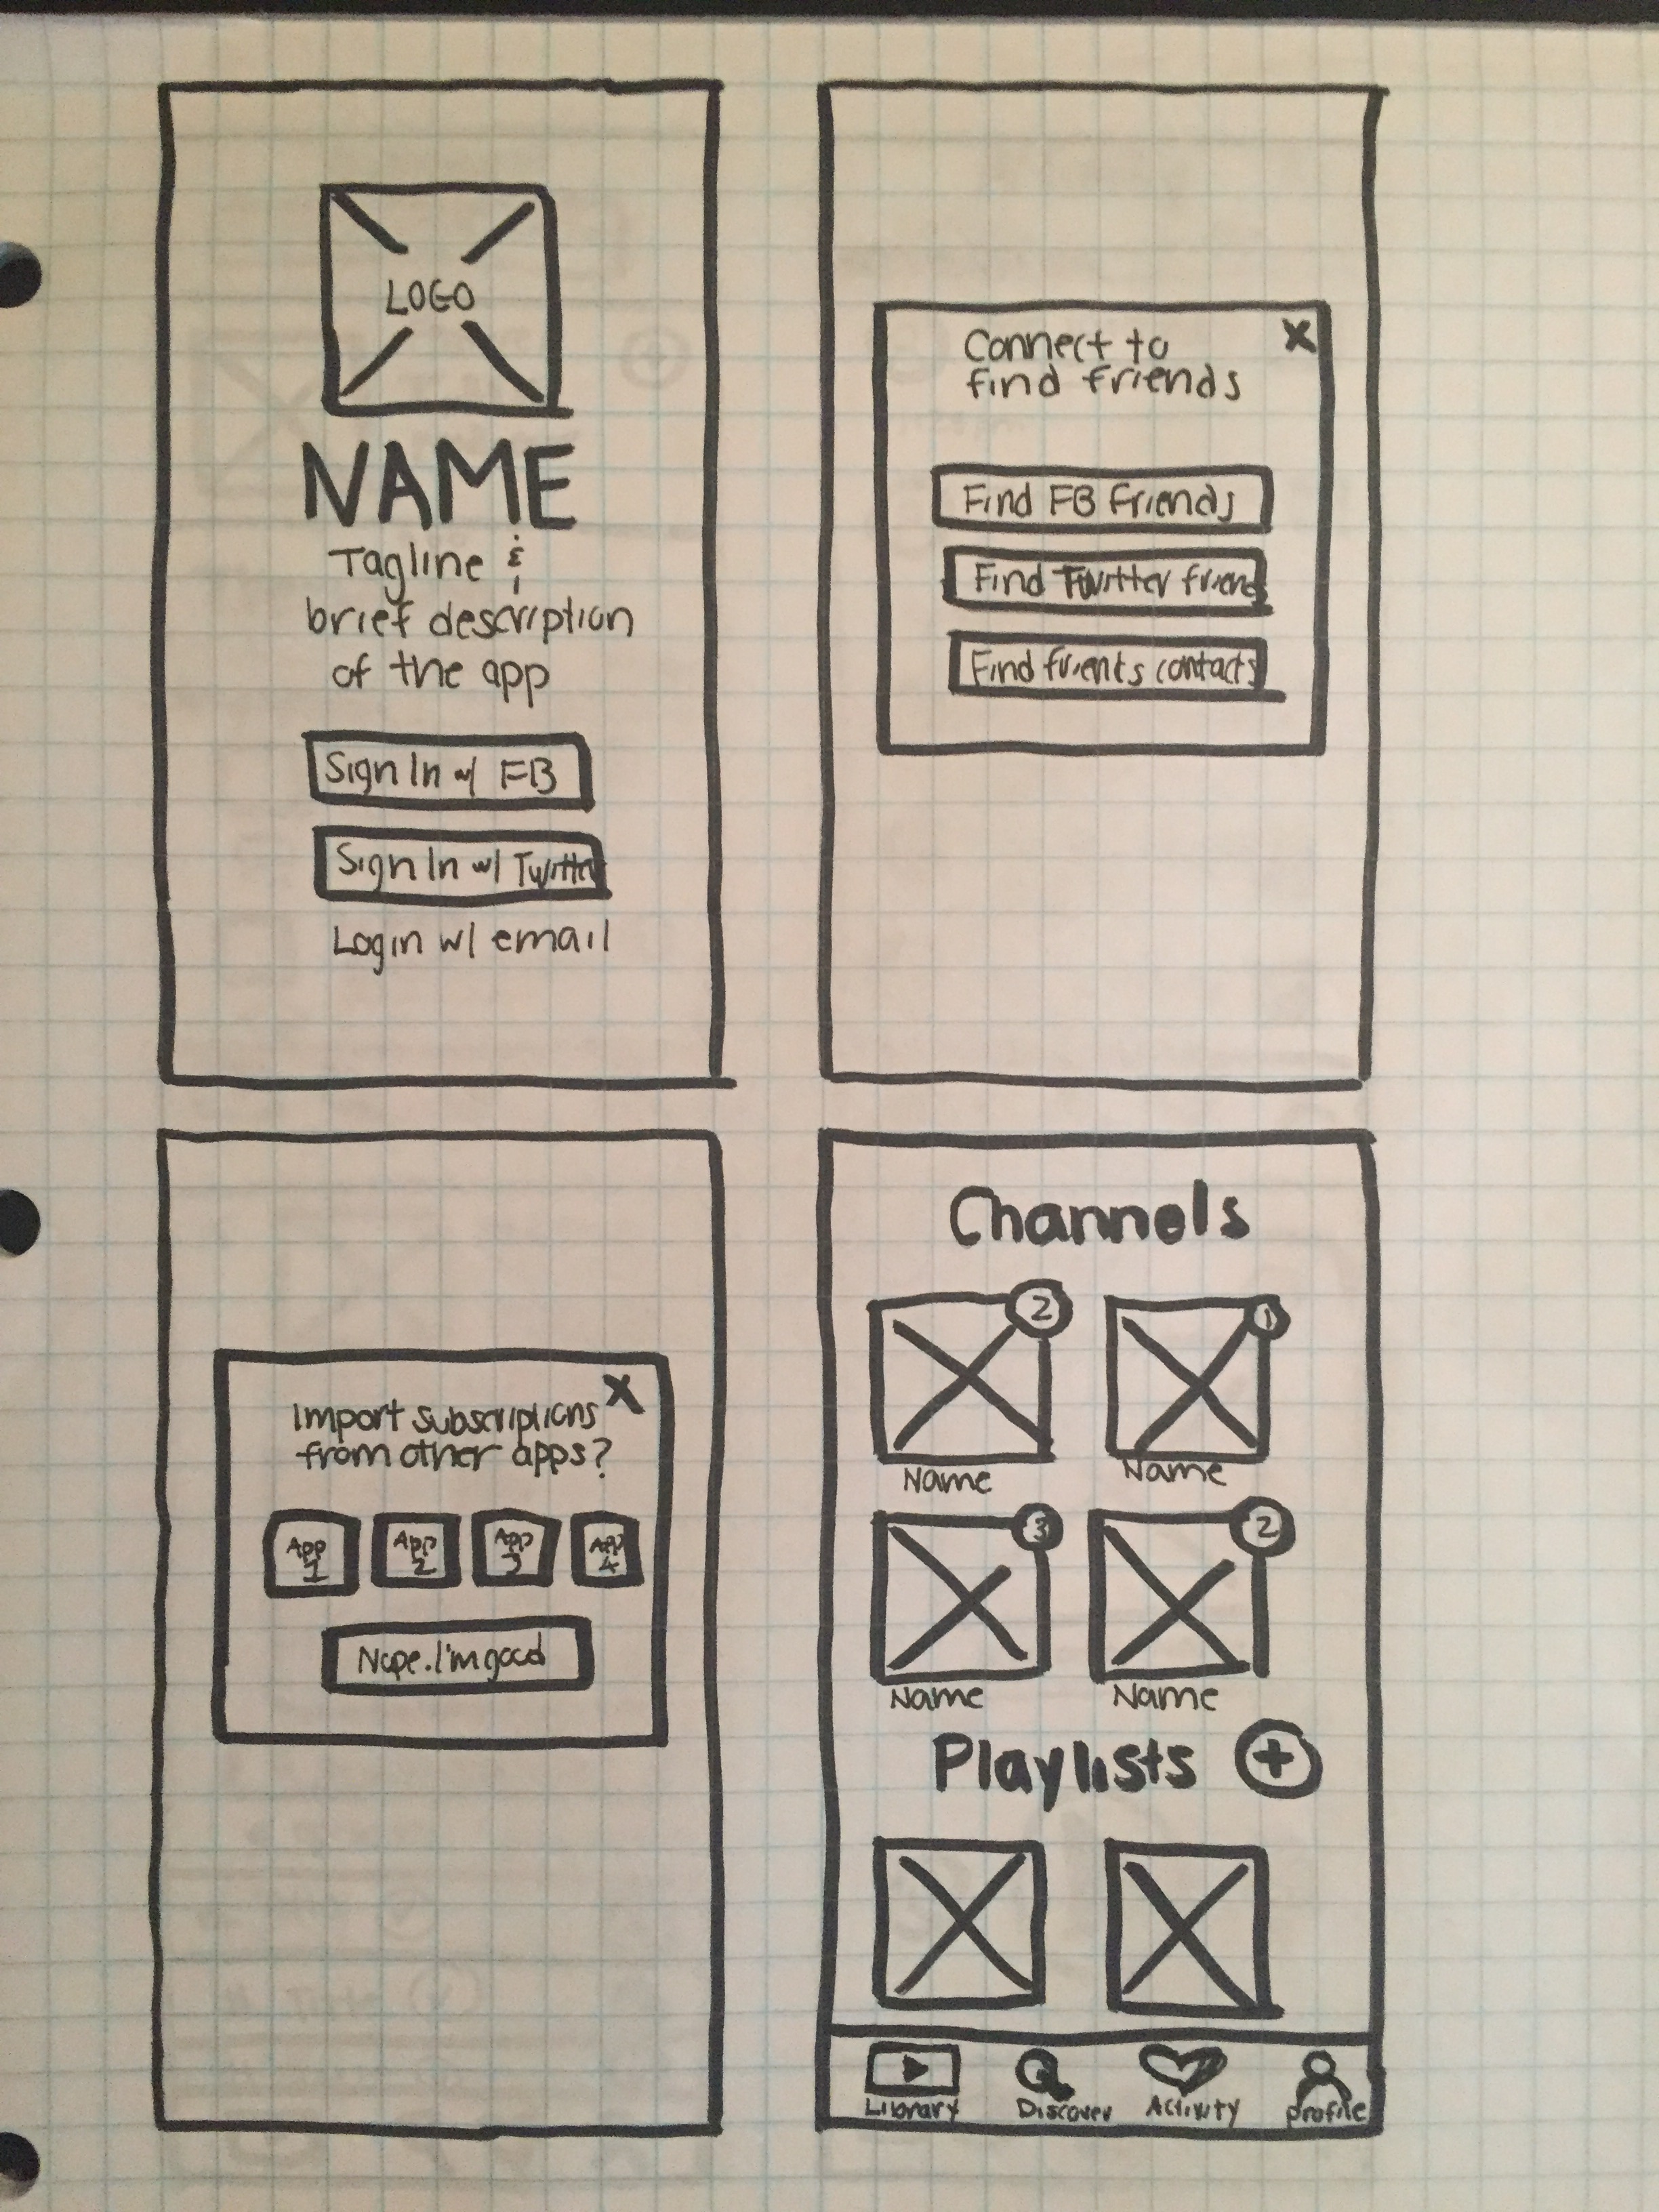 LOGO
NAME
Tagline &
brief description
of the app
Sign In w/ FB
Sign In w/ Twitter
Login w/ email
Connect to
find friends
X
Find FB Friends
Find Twitter friend
Find frients contacts
Import subscriptions
from other apps?
X
App
1
App
2
App
3
App
4
Nope. I'm good
Channels
2
1
Name
Name
3
2
Name
Name
Playlists +
Library
Discover
Activity
profile